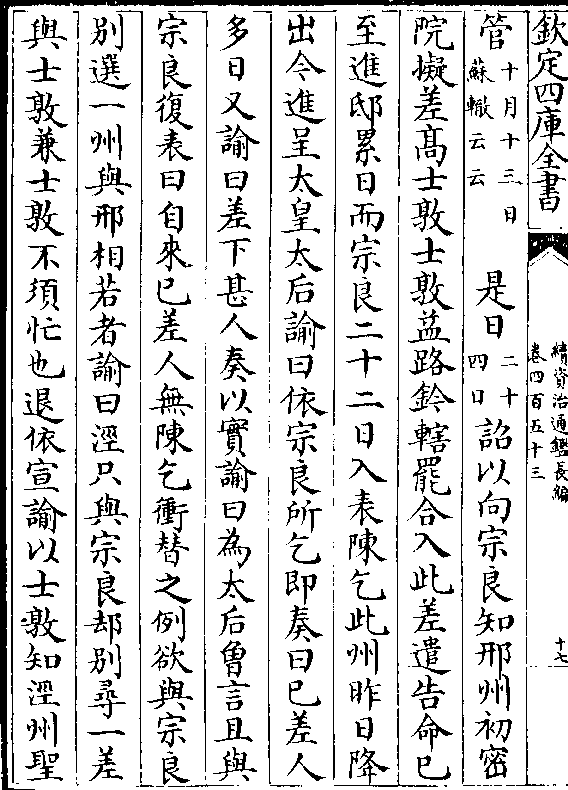 欽定四庫全書
續資治通鑑長編
卷四百五十三
十七
管
十月十三日
蘇轍云云
是日
二十
四日
詔以向宗良知邢州初密
院擬差髙士敦士敦益路鈐轄罷合入此差遣告命已
至進邸累日而宗良二十二日入表陳乞此州昨日降
出令進呈太皇太后諭曰依宗良所乞即奏曰已差人
多日又諭曰差下甚人奏以實諭曰為太后曾言且與
宗良復表曰自來已差人無陳乞衝替之例欲與宗良
别選一州與邢相若者諭曰涇只與宗良却别尋一差
與士敦兼士敦不須忙也退依宣諭以士敦知涇州聖